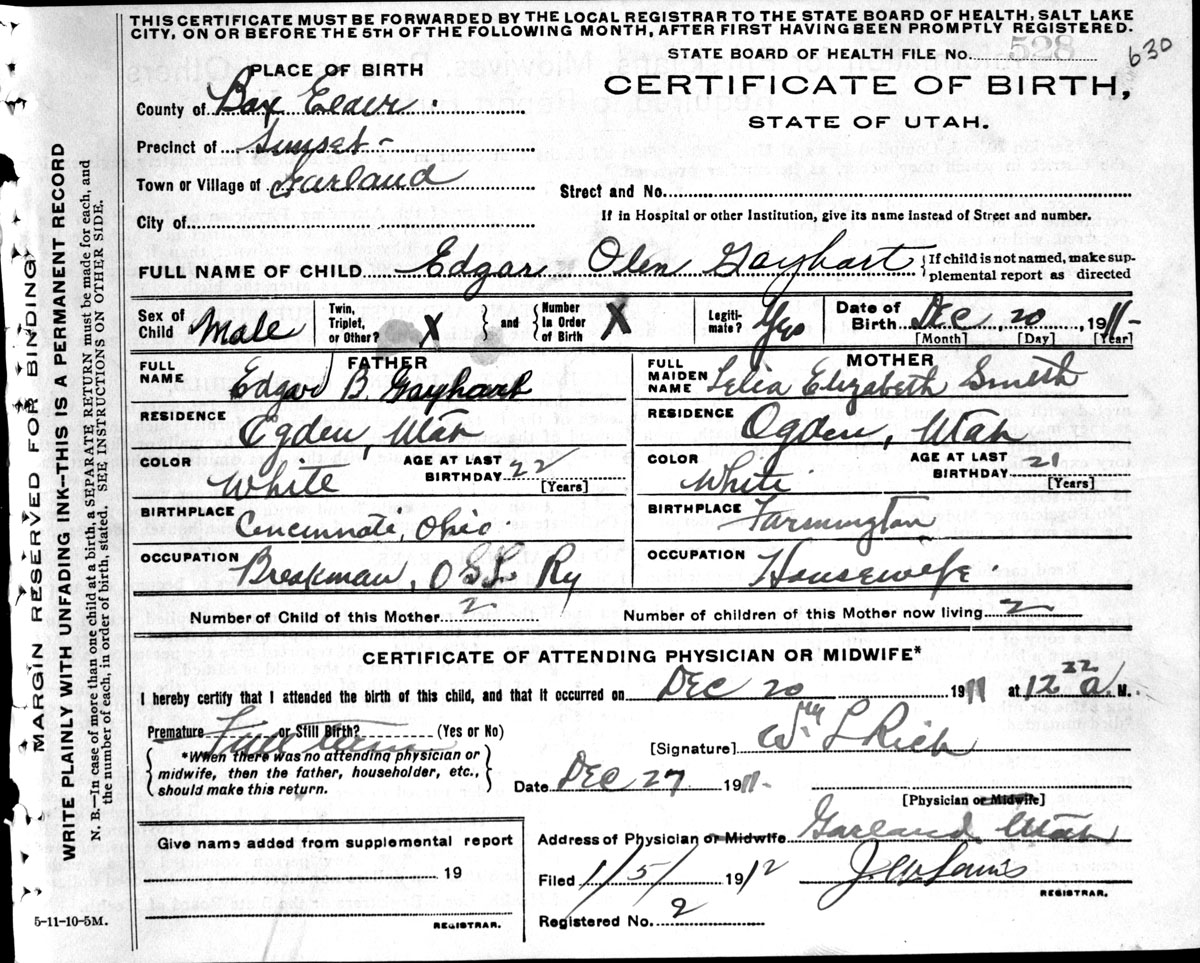 THIS CERTIFICATE MUST BE FORWARDED BY THE LOCAL REGISTRAR TO THE STATE BOARD OF HEALTH, SALT LAKE
CITY, ON OR BEFORE THE 5TH OF THE FOLLOWING MONTH, AFTER FIRST HAVING BEEN PROMPTLY REGISTERED.
STATE BOARD OF HEALTH FILE No. 528 630
PLACE OF BIRTH
CERTIFICATE OF BIRTH,
STATE OF UTAH.
County of Box Elder
Precinct of Sunset
Town or Village of Garland
Street and No.
City of
If in Hospital or other Institution, give its name instead of Street and number.
FULL NAME OF CHILD Edgar Olen Gayhart {If child is not named, make sup-
plemental report as directed
Sex of Child Male Twin, Triplet, or Other? X } and { Number in Order of Birth X Legiti-mate? Yes Date of Birth Dec 20, 1911
[Month] [Day] [Year]
FATHER
FULL NAME Edgar B. Gayhart
RESIDENCE Ogden, Utah
COLOR White AGE AT LAST BIRTHDAY 22
[Years]
BIRTHPLACE Cencinnati, Ohio
OCCUPATION Breakman, O S L Ry
MOTHER
FULL MAIDEN NAME Lelia Elizabeth Smith
RESIDENCE Ogden, Utah
COLOR White AGE AT LAST BIRTHDAY 21
[Years]
BIRTHPLACE Farmington
OCCUPATION Housewife
Number of Child of this Mother 2 Number of children of this Mother now living 2
CERTIFICATE OF ATTENDING PHYSICIAN OR MIDWIFE*
I hereby certify that I attended the birth of this child, and that it occurred on Dec 20 1911 at 12 a. M.
Premature or Still Birth? (Yes or No)
Full term
[Signature] Wm L Rich
*When there was no attending physician or
midwife, then the father, householder, etc.,
should make this return.
Date Dec 27 1911
[Physician or Midwife]
Give name added from supplemental report
19
REGISTRAR.
Address of Physician or Midwife Garland Utah
Filed 1/5/ 1912
REGISTRAR.
Registered No. 2
5-11-10-5M.
MARGIN RESERVED FOR BINDING
WRITE PLAINLY WITH UNFADING INK—THIS IS A PERMANENT RECORD
N. B.—In case of more than one child at a birth, a SEPARATE RETURN must be made for each, and
the number of each, in order of birth, stated. SEE INSTRUCTIONS ON OTHER SIDE.